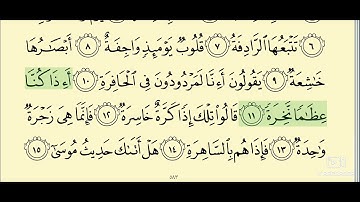 ٦ تَتْبَعُهَا ٱلرَّادِفَةُ ٧ قُلُوبٌ يَوْمَئِذٍ وَاجِفَةٌ ٨ أَبْصَٰرُهَا
خَٰشِعَةٌ ٩ يَقُولُونَ أَءِنَّا لَمَرْدُودُونَ فِى ٱلْحَافِرَةِ ١٠ أَءِذَا كُنَّا
عِظَٰمًا نَّخِرَةً ١١ قَالُوا۟ تِلْكَ إِذًا كَرَّةٌ خَاسِرَةٌ ١٢ فَإِنَّمَا هِىَ زَجْرَةٌ
وَٰحِدَةٌ ١٣ فَإِذَا هُم بِٱلسَّاهِرَةِ ١٤ هَلْ أَتَىٰكَ حَدِيثُ مُوسَىٰٓ ١٥
٥٨٣